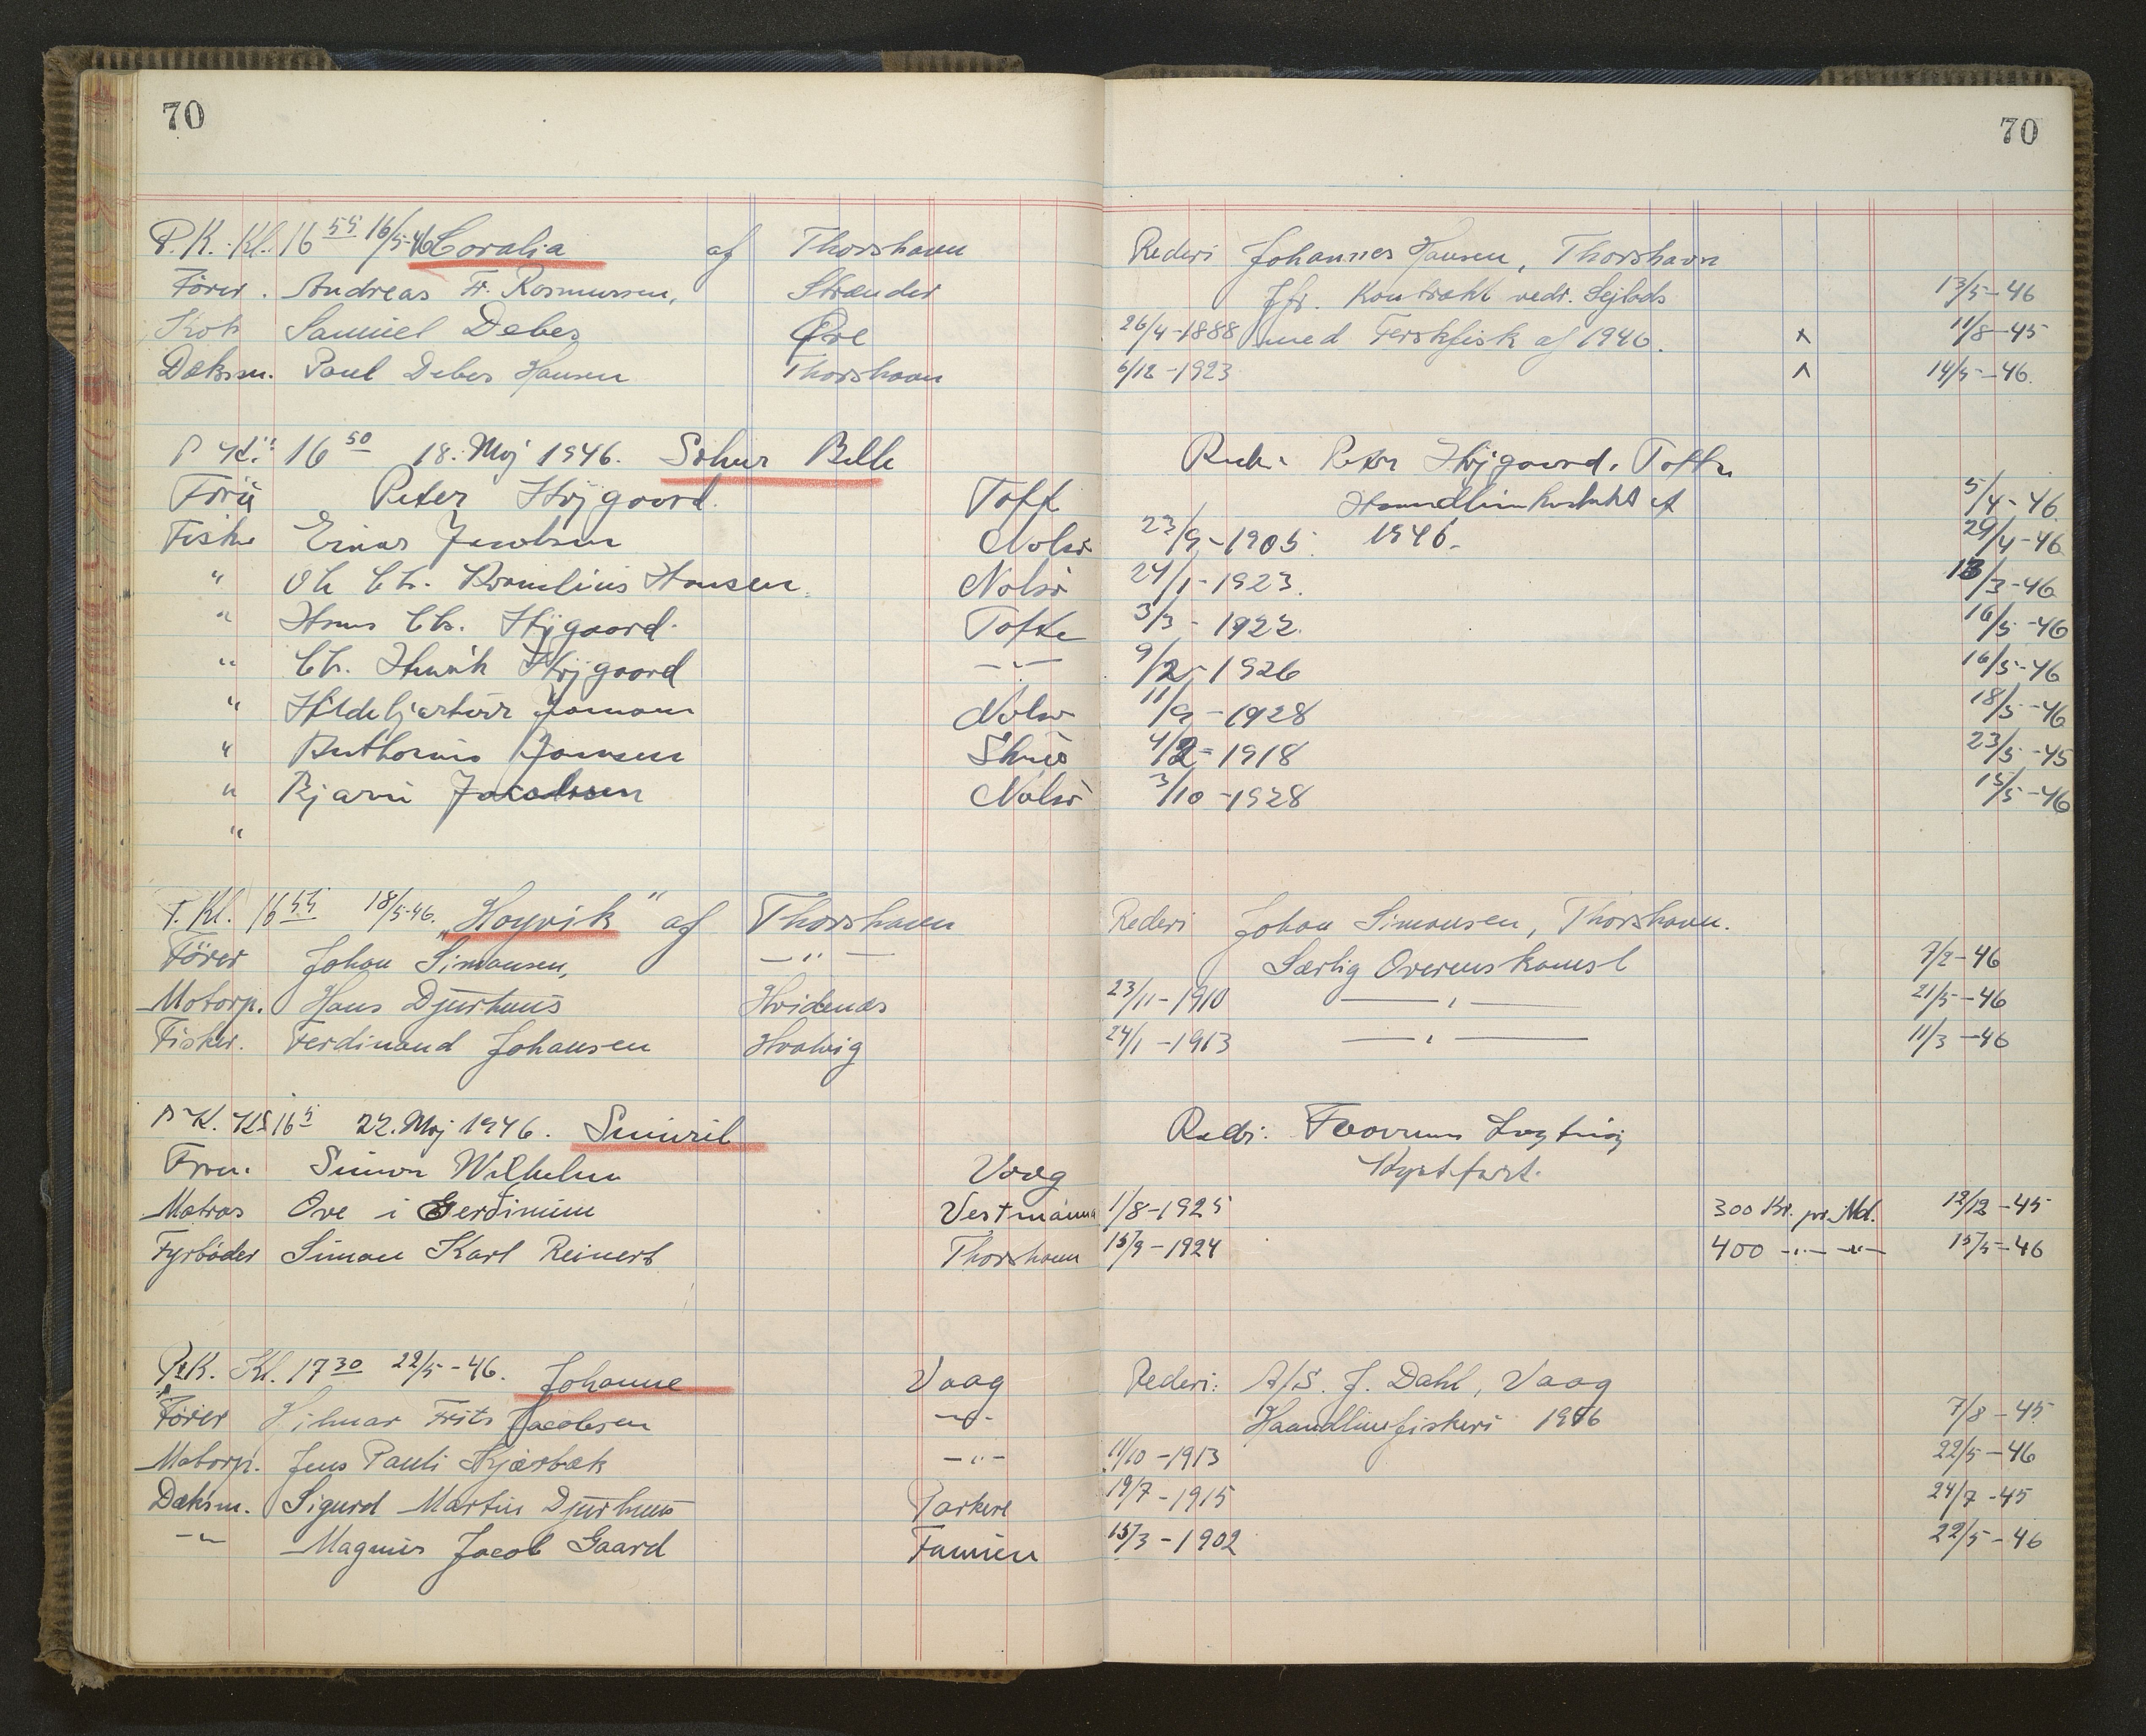 70
70
P. K. Kl. 16 55 16/5-46 Coralia af Thorshavn Rederi Johannes Hansen, Thorshavn
Fører. Andreas Fr. Rasmussen, Strænder Jfr. Kontrakt vedr. Sejlads 13/5-46
Kok Samuel Debes Øre 26/4-1888 med Ferskfisk af 1946. x 11/8-45
Dæksm. Poul Debes Hansen Thorshavn 6/12-1923 x 14/5-46.
P Kl. 16 50 18. Maj 1946. Silver Belle Peter Højgaard. Tofte
Peter Højgaard. Toft 1/4-46
Fisker Einar Jacobsen Nolsø 23/9-1905. 1946. 29/4-46
" Ole Chr. Hansen. Nolsø 24/1-1923. 13/3-46
" Hans Chr. Højgaard. Tofte 3/3-1922. 16/5-46
" Chr. Henrik Højgaard -"- 9/2-1926 16/5-46
" Nolsø 11/9-1928 18/5-46
" Anthonius Joensen 4/2-1918 23/5-45
" Bjarni Jacobsen Nolsø 3/10-1928 15/5-46
"
Kl. 16 55 18/5-46. "Hoyvik" af Thorshavn Rederi Johan Simonsen, Thorshavn.
Fører Johan Simonsen, -"- Særlig Overenskomst 7/2-46
Motorp. Hans Djurhuus Hvidenæs 23/11-1910 -"- 21/5-46
Fisker. Ferdinand Johansen Hvalvig 24/1-1913 -"- 11/3-46
P. K. Kl 16 5 22. Maj 1946. Smiril Rederi: Lagting
Simon Wilhelm Vaag Kystfart.
Matros Ove i Gerdinum Vestmanna 1/8-1925 300 Kr. pr. Md. 12/12-45
Fyrbøder Simon Karl Reinert Thorshavn 15/9-1924 400 -"- -"- 15/5-46
P. K. Kl. 17 30 22/5-46. Johanne Vaag Rederi: A/S. J. Dahl, Vaag
Fører Hilmar Frits Jacobsen -"- Haandlinefiskeri 1946 7/8-45
Motorp. Jens Pauli Kjærbæk -"- 11/10-1913 22/5-46
Dæksm. Sigurd Martin Djurhuus Porkere 19/7-1915 24/7-45
-"- Magnus Jacob Gaard Famien 15/3-1902 22/5-46